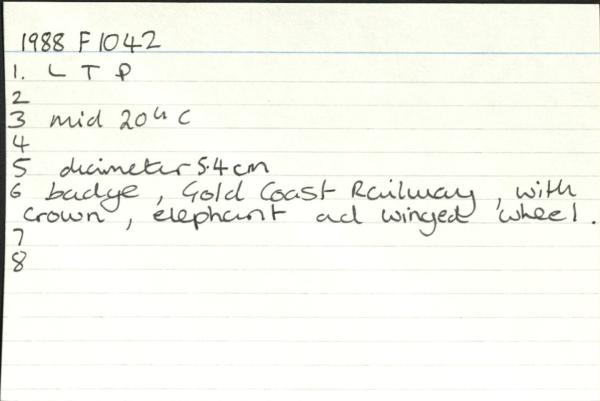 1988 F 1042
1. L T P
2
3 mid 20th C
4
5 diameter 5.4 cm
6 badge, Gold Coast Railway, with
crown, elephant ad winged wheel.
7
8